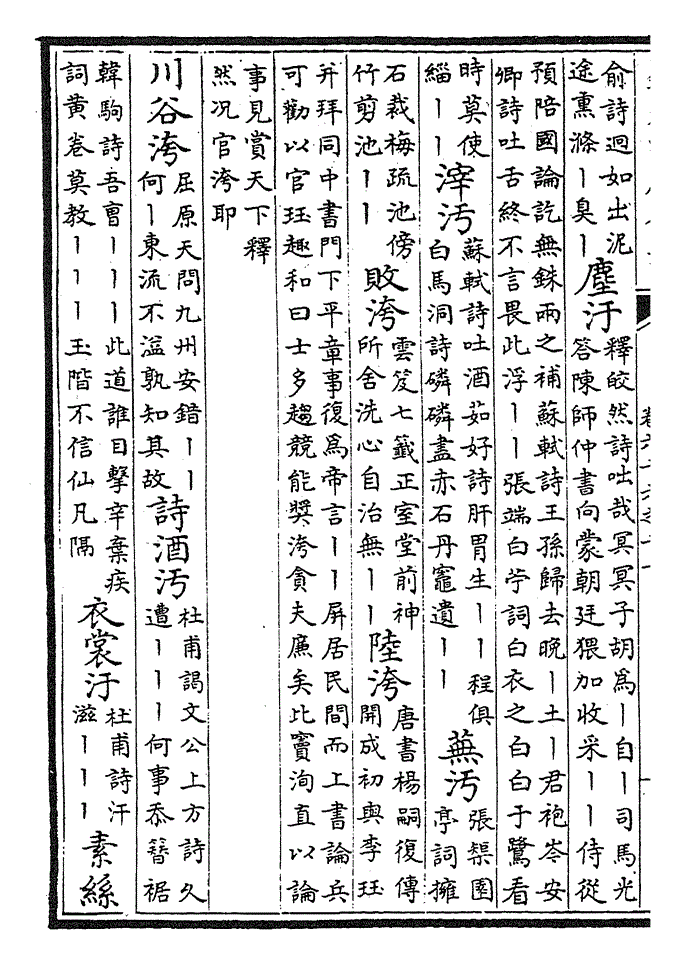 俞詩迥如出泥
途熏滌丨臭丨
塵汙
釋皎然詩咄哉冥冥子胡爲丨自丨司馬光
答陳師仲書向蒙朝廷猥加收采丨丨侍從
預陪國論訖無銖兩之補蘇軾詩王孫歸去晚丨土丨君袍岑安
卿詩吐舌終不言畏此浮丨丨張端白苧詞白衣之白白于鷺看
時莫使
緇丨丨
滓汚
蘇軾詩吐酒茹好詩肝胃生丨丨程俱
白馬洞詩磷磷盡赤石丹竈遺丨丨
蕪汚
張榘園
亭詞擁
石裁梅疏池傍
竹剪池丨丨
敗洿
雲笈七籤正室堂前神
所舍洗心自治無丨丨
陸洿
唐書楊嗣復傳
開成初與李珏
并拜同中書門下平章事復爲帝言丨丨屏居民間而上書論兵
可勸以官珏趣和曰士多趨競能奬洿貪夫廉矣比竇洵直以論
事見賞天下釋
然况官洿耶
川谷洿
屈原天問九州安錯丨丨
何丨東流不溢孰知其故
詩酒汚
杜甫謁文公上方詩久
遭丨丨丨何事忝簪裾
韓駒詩吾曾丨丨丨此道誰目擊辛棄疾
詞黄卷莫教丨丨丨玉階不信仙凡隔
衣裳汙
杜甫詩汗
滋丨丨丨
素絲